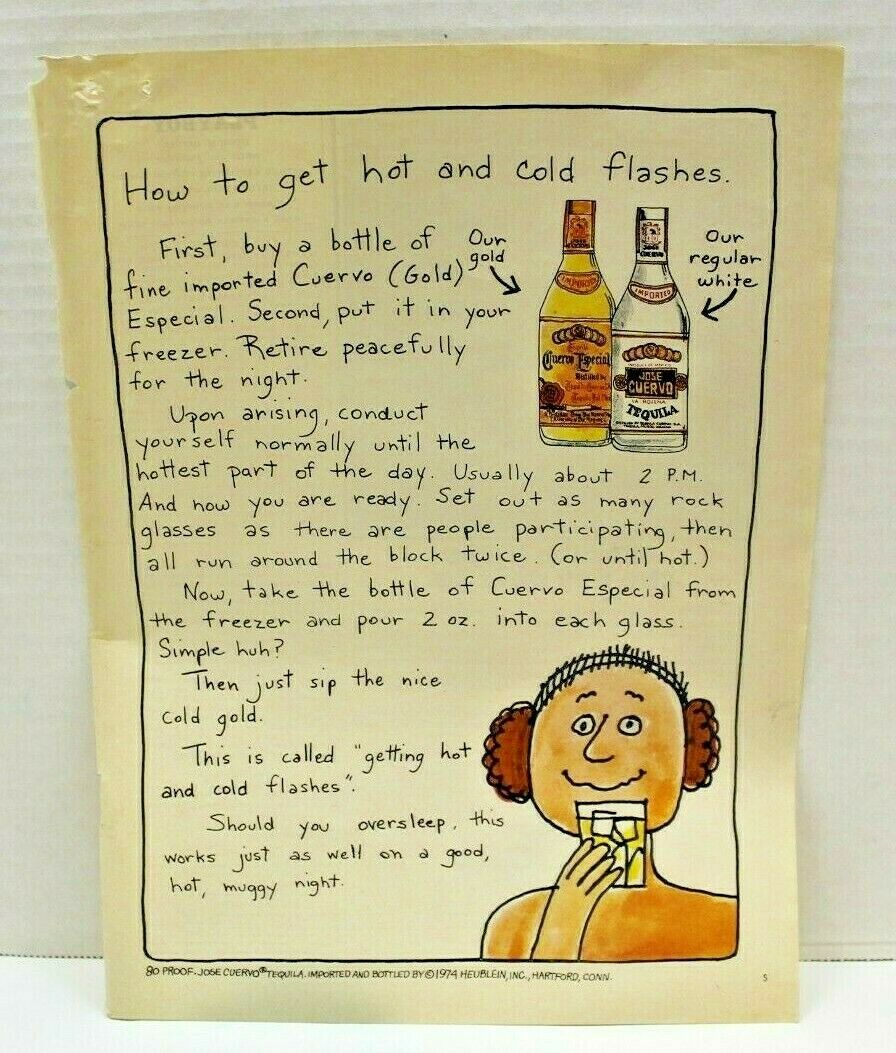 How to get hot and cold flashes.
First, buy a bottle of
fine imported Cuervo (Gold)
Especial. Second, put it in your
freezer. Retire peacefully
for the night.
Our
gold
Our
regular
white
IMPORTED
Cuervo Especial
JOSE
CUERVO
IMPORTED
JOSE
CUERVO
LA ROJENA
TEQUILA
Upon arising, conduct
yourself normally until the
hottest part of the day. Usually about 2 P.M.
And now you are ready. Set out as many rock
glasses as there are people participating, then
all run around the block twice. (or until hot.)
Now, take the bottle of Cuervo Especial from
the freezer and pour 2 oz. into each glass.
Simple huh?
Then just sip the nice
cold gold.
This is called "getting hot
and cold flashes".
Should you oversleep, this
works just as well on a good,
hot, muggy night.
80 PROOF. JOSE CUERVO® TEQUILA. IMPORTED AND BOTTLED BY © 1974 HEUBLEIN, INC., HARTFORD, CONN.